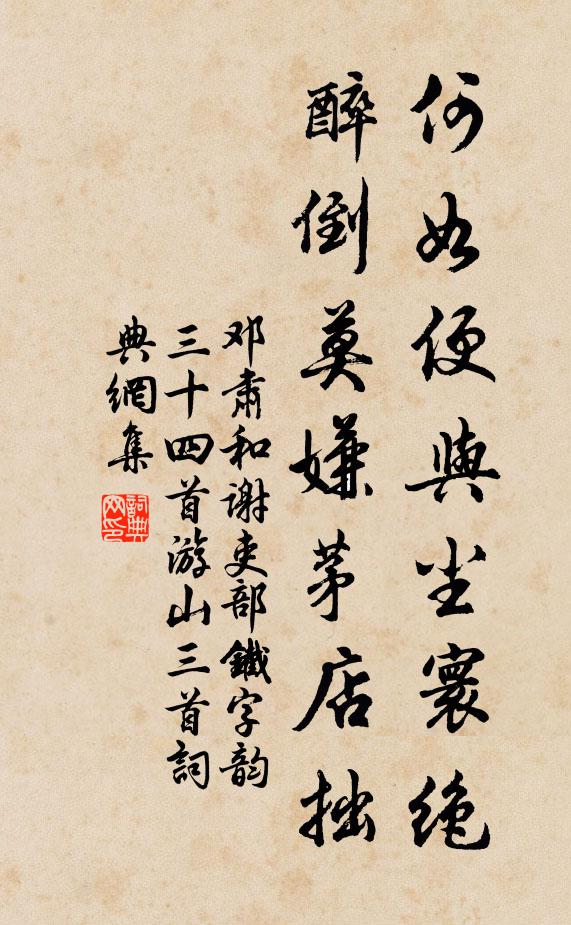 何如便與尘寰绝
醉倒莫嫌茅店拙
邓肃和谢吏部鐵字韵
三十四首游山三首詞
典網集
詞典网印